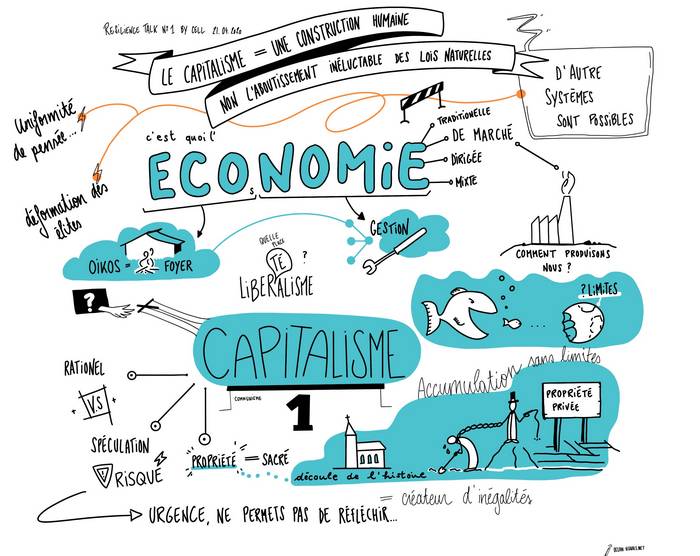 RESILIENCE TALK N°1 BY CELL 21.04.2020
LE CAPITALISME = UNE CONSTRUCTION HUMAINE
NON L'ABOUTISSEMENT INÉLUCTABLE DES LOIS NATURELLES
D'AUTRE
SYSTÈMES
SONT POSSIBLES
Uniformité
de pensée...
déformation des
élites
c'est quoi l'
ECONOMiE
TRADITIONELLE
DE MARCHÉ
DIRIGÉE
MIXTE
OIKOS = FOYER
GESTION
QUELLE
PLACE
TE
?
LIBERALISME
COMMENT PRODUISONS
NOUS ?
? LIMITES
?
CAPITALISME
COMMUNISME
1
Accumulation sans limites
RATIONEL
V.S
SPÉCULATION
RISQUE
PROPRIÉTÉ = SACRÉ
découle de l'histoire
PROPRIÉTÉ
PRIVÉE
= créateur d'inégalités
URGENCE, NE PERMETS PAS DE RÉFLÉCHIR...